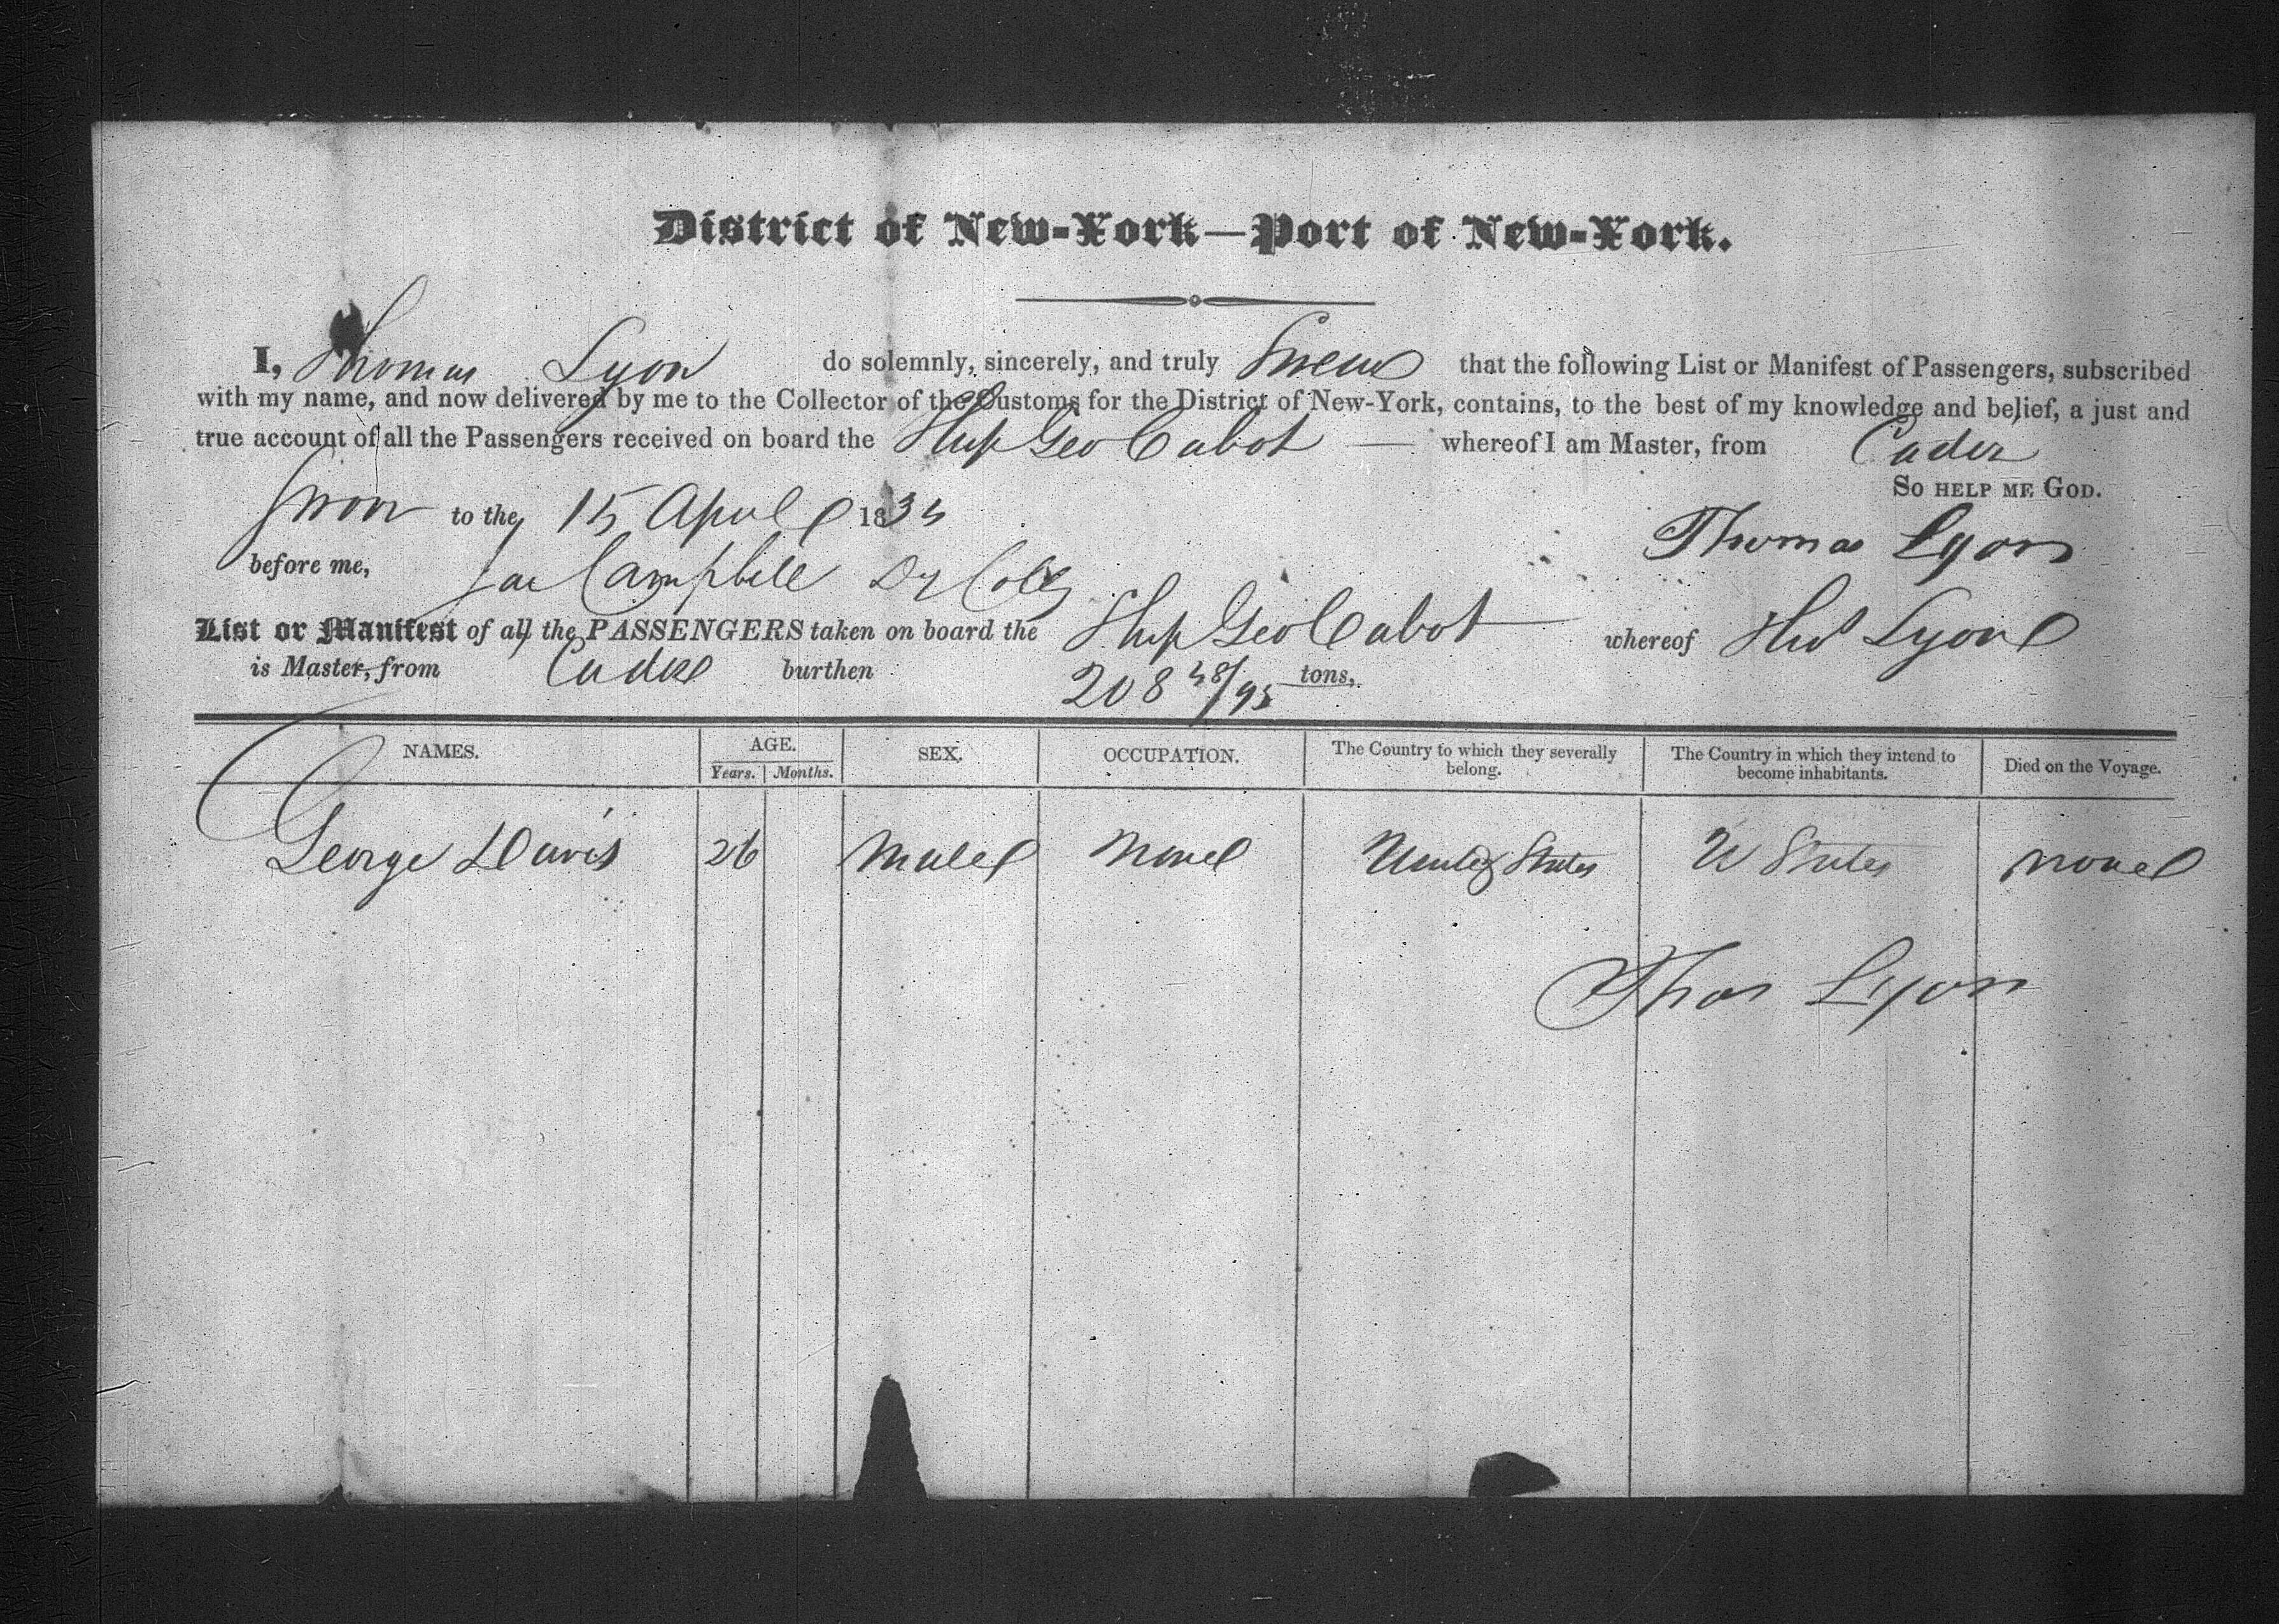 District of New-York—Port of New-York.
I, Thomas Lyon do solemnly, sincerely, and truly Swear that the following List or Manifest of Passengers, subscribed
with my name, and now delivered by me to the Collector of the Customs for the District of New-York, contains, to the best of my knowledge and belief, a just and
true account of all the Passengers received on board the Ship Geo Cabot — whereof I am Master, from Cadiz
So help me God.
Sworn to the 15 April 183
Thomas Lyon
before me, Jas Campbell Dy Coll
List or Manifest of all the PASSENGERS taken on board the Ship Geo Cabot whereof Thos Lyon
is Master, from Cadiz burthen 208 48/95 tons,
NAMES. AGE. SEX. OCCUPATION. The Country to which they severally belong. The Country in which they intend to become inhabitants. Died on the Voyage.
Years. Months.
George Davis 26 Male None United States U States None
Thos Lyon